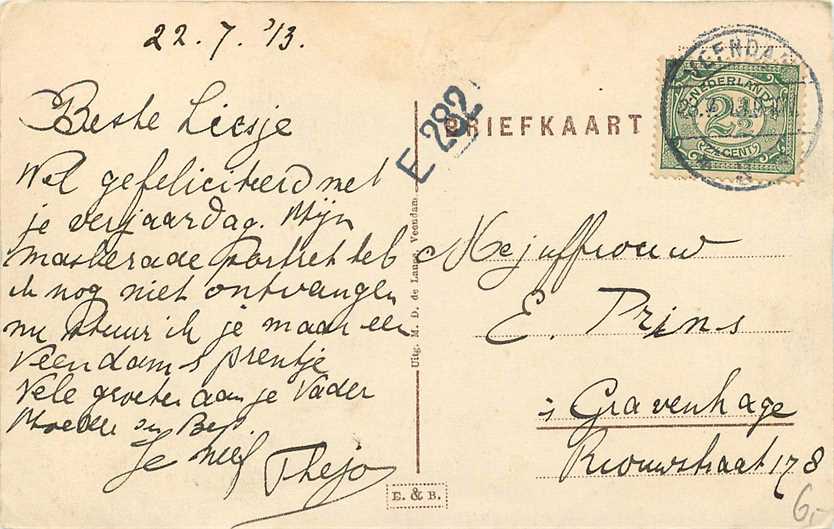 22.7.'13.
Beste Liesje
Wel gefeliciteerd met
je verjaardag. Mijn
maskerade portret heb
ik nog niet ontvangen
nu stuur ik je maar een
Veendams prentje
Vele groeten aan je Vader
Moeder en
Je neef
Thejo
E 282
BRIEFKAART
VEENDAM
NEDERLAND
2½
CENT
Uitg. M. D. de Lange, Veendam.
Mejuffrouw
E. Prins
's Gravenhage
Riouwstraat 178
E. & B.
6,-